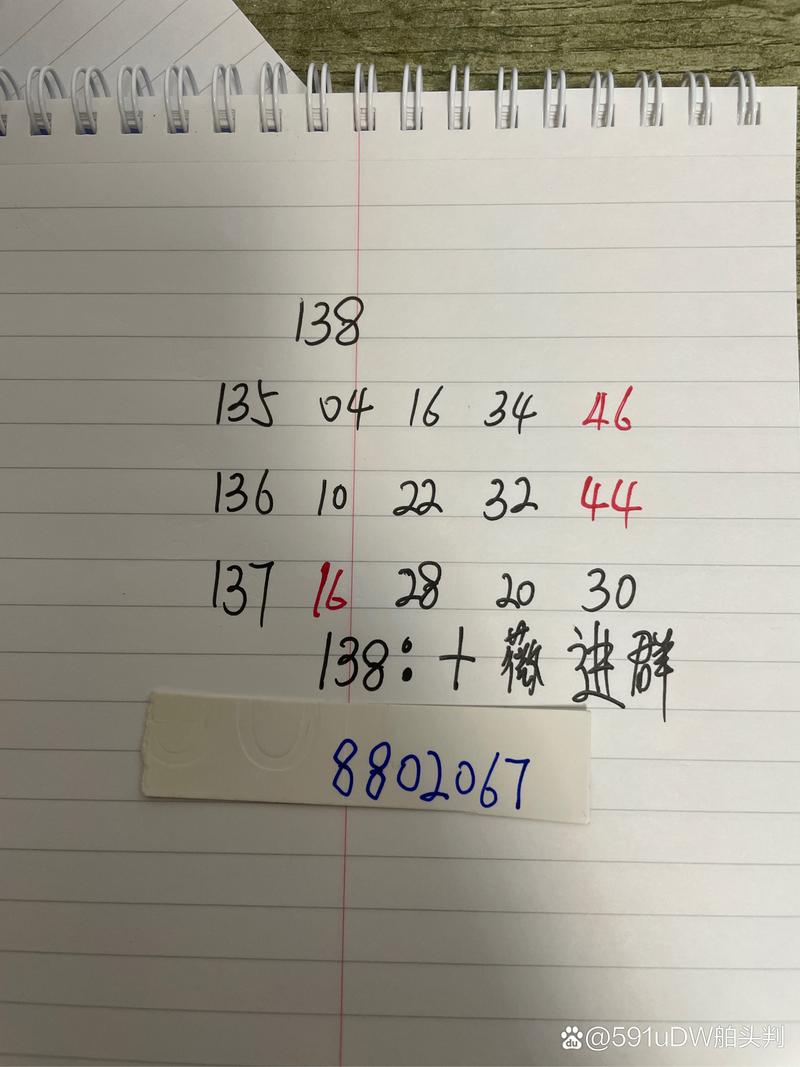 138
135 04 16 34 46
136 10 22 32 44
137 16 28 20 30
138:十薇进群
8802067
du @591uDW舶头判